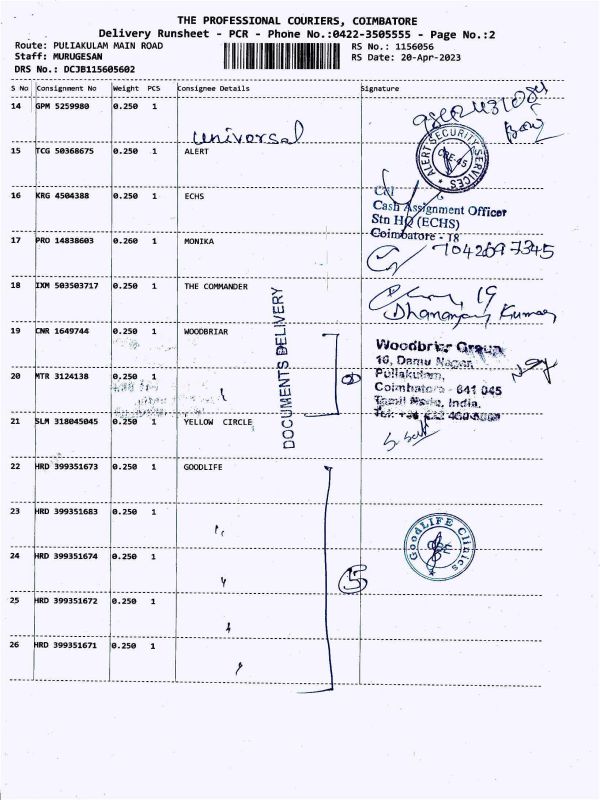 THE PROFESSIONAL COURIERS, COIMBATORE
Delivery Runsheet - PCR - Phone No.:0422-3505555 - Page No.:2
Route: PULIAKULAM MAIN ROAD RS No.: 1156056
Staff: MURUGESAN RS Date: 20-Apr-2023
DRS No.: DCJB115605602
S No Consignment No Weight PCS Consignee Details Signature
14 GPM 5259980 0.250 1
universal
15 TCG 50368675 0.250 1 ALERT
ALERT SECURITY SERVICES
CBE-45
16 KRG 4504388 0.250 1 ECHS
Cash Assignment Officer
Stn HQ (ECHS)
Coimbatore - 18
17 PRO 14838603 0.260 1 MONIKA
7042697345
18 IXM 503503717 0.250 1 THE COMMANDER
19
Dhananjay Kumar
DOCUMENTS DELIVERY
19 CNR 1649744 0.250 1 WOODBRIAR
Woodbriar Group
16, Damu Nagar,
20 MTR 3124138 0.250 1
Puliakulam,
Coimbatore - 641 045
Tamil Nadu, India.
21 SLM 318045045 0.250 1 YELLOW CIRCLE
22 HRD 399351673 0.250 1 GOODLIFE
23 HRD 399351683 0.250 1
GoodLIFE Clinics
24 HRD 399351674 0.250 1
5
25 HRD 399351672 0.250 1
26 HRD 399351671 0.250 1